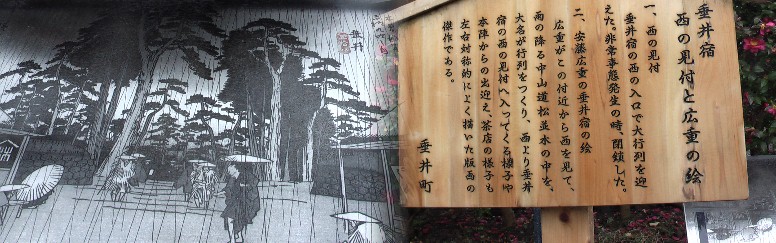 垂井宿
西の見付と広重の絵
一、西の見付
垂井宿の西の入口で大行列を迎
えた。非常事態発生の時、閉鎖した。
二、安藤広重の垂井宿の絵
広重がこの付近から西を見て、
雨の降る中山道松並木の中を、
大名が行列をつくり、西より垂井
宿の西の見付へ入ってくる様子や
本陣からの出迎え、茶店の様子も
左右対称的によく描いた版画の
傑作である。
垂井町
垂井